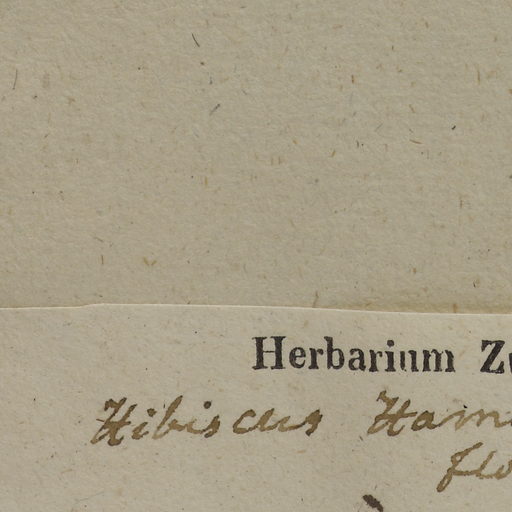 Herbarium Zu
Hibiscus Ham
flo